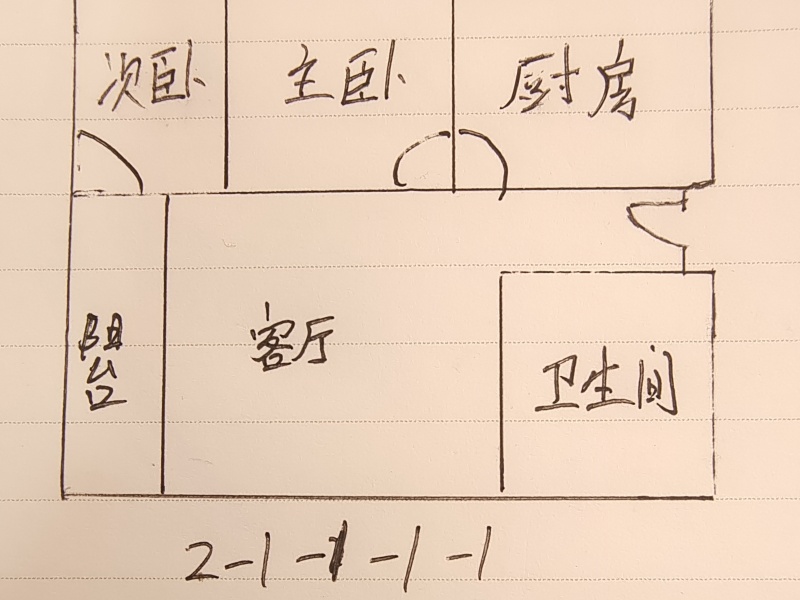 次卧 主卧 厨房
阳台 客厅 卫生间
2-1-1-1-1